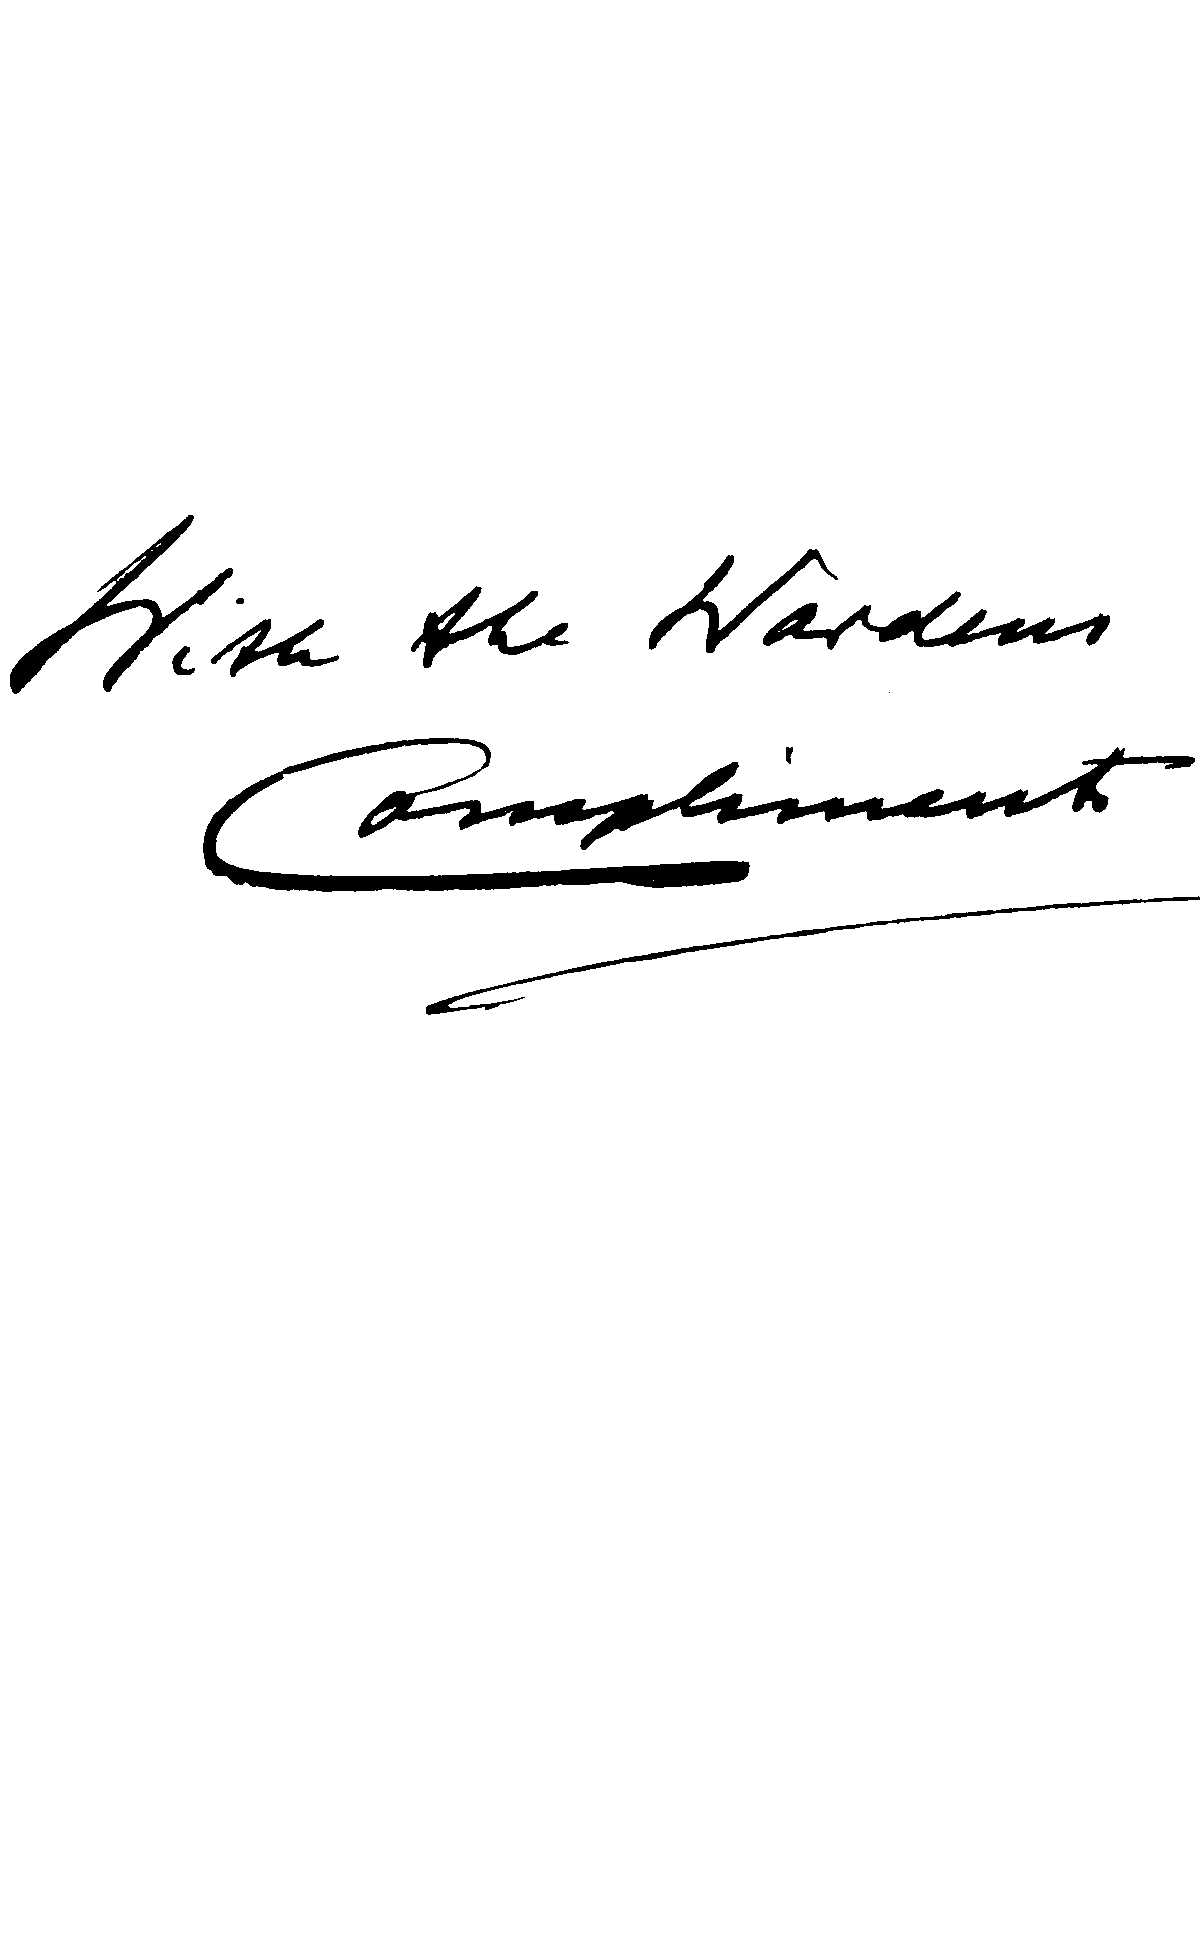 With the Wardens
Compliments